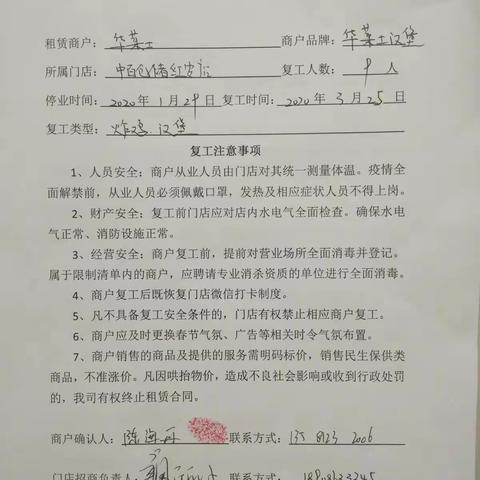 租赁商户：华莱士 商户品牌：华莱士汉堡
所属门店：中百仓储红安店 复工人数：9 人
停业时间：2020年1月29日 复工时间：2020年3月25日
复工类型：炸鸡.汉堡
复工注意事项
1、人员安全：商户从业人员由门店对其统一测量体温。疫情全
面解禁前，从业人员必须佩戴口罩，发热及相应症状人员不得上岗。
2、财产安全：复工前门店应对店内水电气全面检查。确保水电
气正常、消防设施正常。
3、经营安全：商户复工前，提前对营业场所全面消毒并登记。
属于限制清单内的商户，应聘请专业消杀资质的单位进行全面消毒。
4、商户复工后既恢复门店微信打卡制度。
5、凡不具备复工安全条件的，门店有权禁止相应商户复工。
6、商户应及时更换春节气氛、广告等相关时令气氛布置。
7、商户销售的商品及提供的服务需明码标价，销售民生保供类
商品，不准涨价。凡因哄抬物价，造成不良社会影响或收到行政处罚
的，我司有权终止租赁合同。
商户确认人：陈海丹 联系方式：135 8123 2006
门店招商负责人： 联系方式：